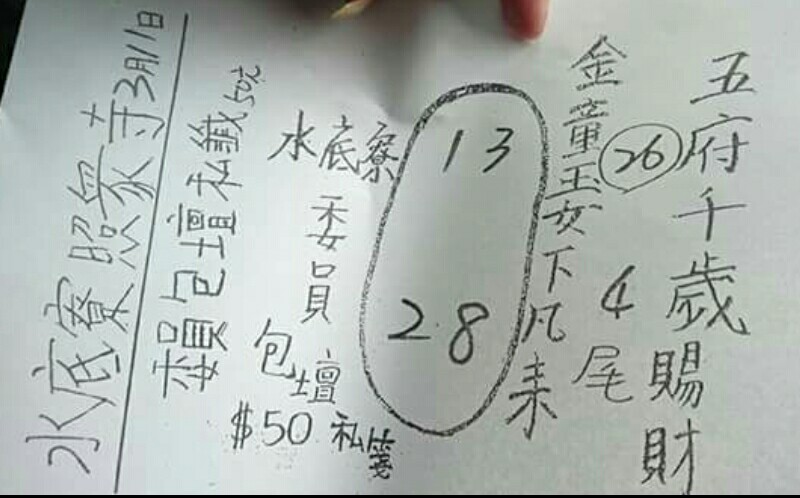 五府千歲賜財
26
4尾
金童玉女下凡來
13
28
水底寮
委員
包壇
$50 私箋
委員包壇私籤50元
水底寮照眾寺3月11日